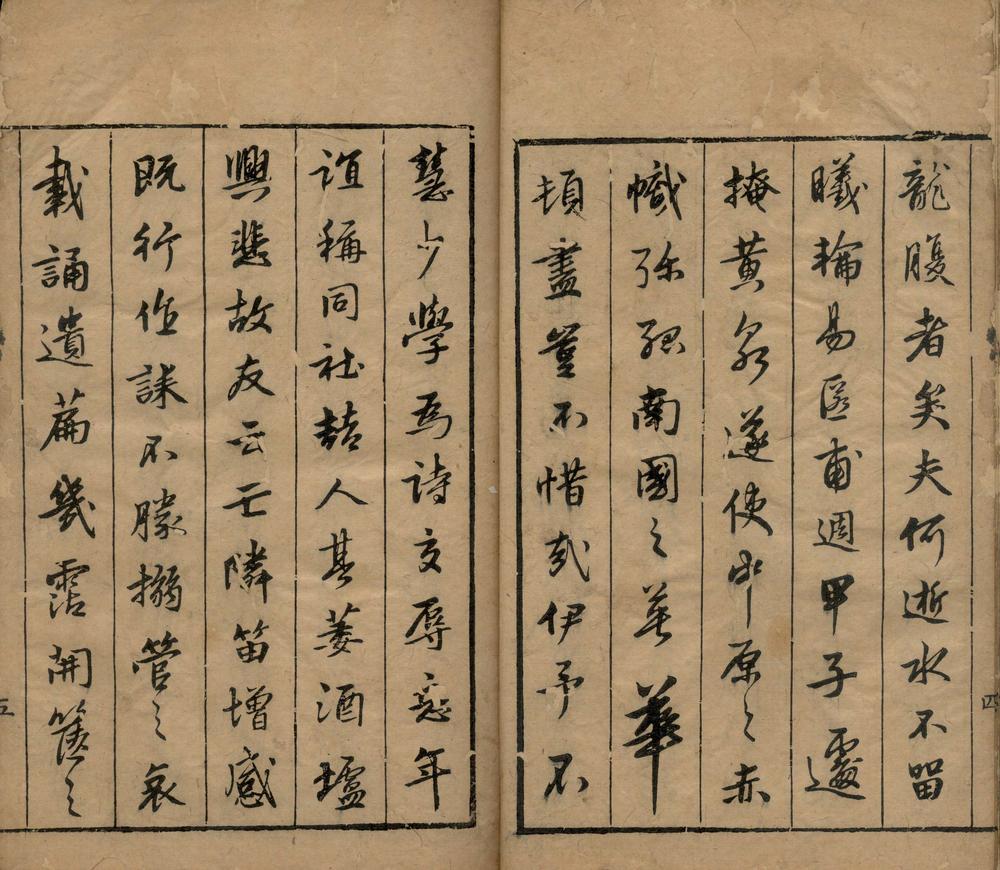 龍腹者矣夫何逝水不留
曦輪易匿甫週甲子遽
掩黄泉遂使中原之赤
幟弥孤南國之英華
頓盡豈不惜哉伊予不
慧少學為詩文辱忘年
誼稱同社喆人其萎酒壚
興悲故友云亡隣笛增感
既行作誄不勝搦管之哀
載誦遺篇幾霑開篋之
四
五